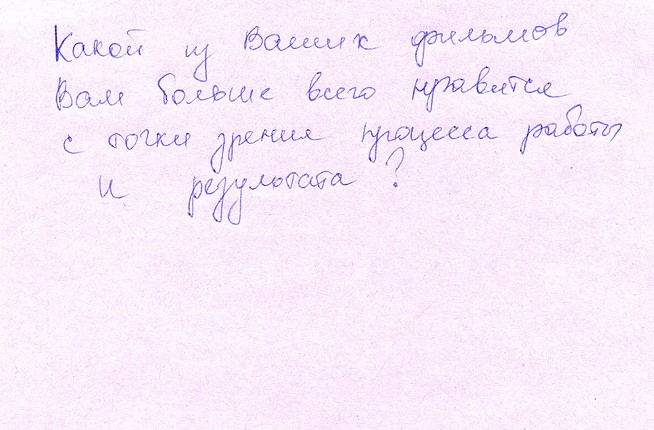 Какой из Ваших фильмов
Вам больше всего нравится
с точки зрения процесса работы
и результата?